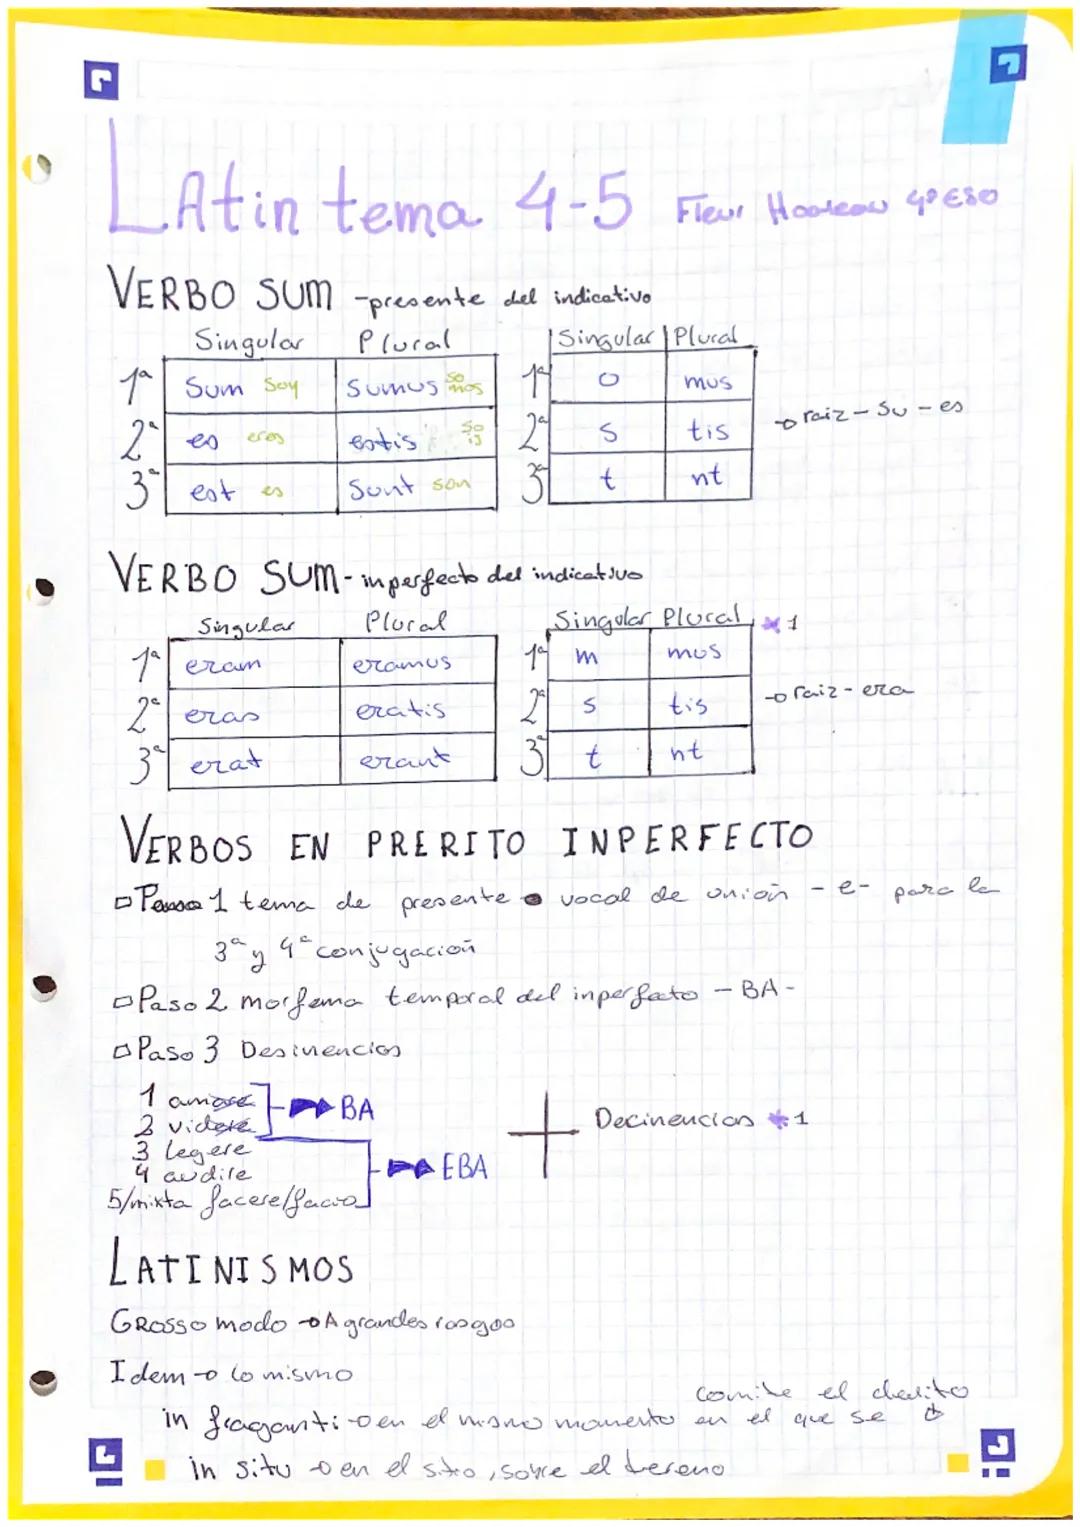 LAtin tema 4-5 Fleur 4º ESO
VERBO SUM -presente del indicativo
Singular Plural Singular Plural
1ª Sum Soy Sumus somos 1ª o mus
2ª es eres estis sois 2ª s tis →raiz-su-es
3ª est es Sunt son 3ª t nt
VERBO SUM-inperfecto del indicativo
Singular Plural Singular Plural *1
1ª eram eramus 1ª m mus
2ª eras eratis 2ª s tis →raiz-era
3ª erat erant 3ª t nt
VERBOS EN PRERITO INPERFECTO
Paso 1 tema de presente • vocal de unión -e- para la
3ª y 4ª conjugación
Paso 2 morfema temporal del inperfecto -BA-
Paso 3 Desinencias
1 amare BA + Decinencias *1
2 videre
3 legere
4 audire EBA
5/mixta facere/facio
LATINISMOS
GRosso modo → A grandes rasgos
Idem → lo mismo
in fraganti → en el mismo momento en el que se comite el delito
in situ → en el sitio, sobre el tereno